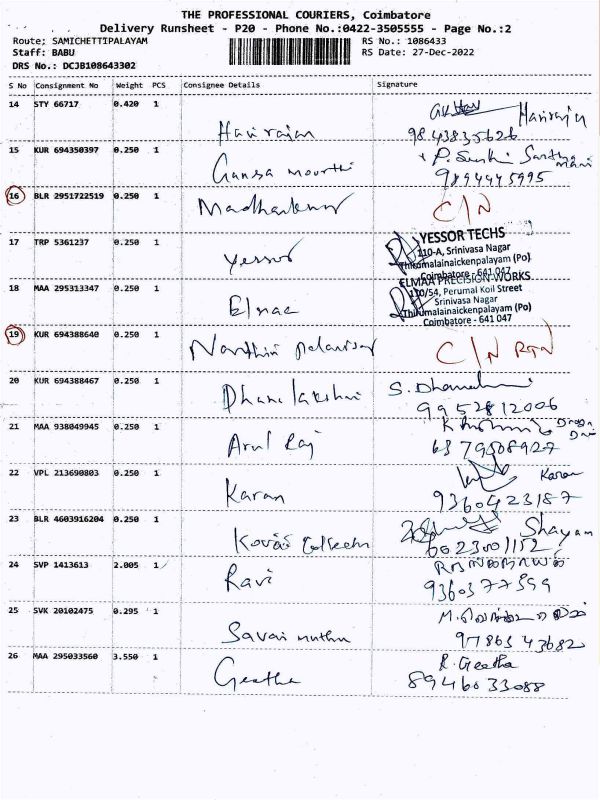 THE PROFESSIONAL COURIERS, Coimbatore
Delivery Runsheet - P20 - Phone No.:0422-3505555 - Page No.:2
Route: SAMICHETTIPALAYAM RS No.: 1086433
Staff: BABU RS Date: 27-Dec-2022
DRS No.: DCJB108643302
S No Consignment No Weight PCS Consignee Details Signature
14 STY 66717 0.420 1 Harirajan Harirajan
9843835626
15 KUR 694350397 0.250 1 Gansa moorthi P.
9894445995
16 BLR 2951722519 0.250 1 C/N
17 TRP 5361237 0.250 1 Yessor YESSOR TECHS
110-A, Srinivasa Nagar
Thirumalainaickenpalayam (Po)
Coimbatore - 641 047
18 MAA 295313347 0.250 1 Elmac ELMAA PRECISION WORKS
110/54, Perumal Koil Street
Srinivasa Nagar
Thirumalainaickenpalayam (Po)
Coimbatore - 641 047
19 KUR 694388640 0.250 1 C/N RTN
20 KUR 694388467 0.250 1 Dhanalakshmi S.
9952812006
21 MAA 938049945 0.250 1 Arul Raj
6379508927
22 VPL 213690803 0.250 1 Karan Karan
9360423187
23 BLR 4603916204 0.250 1 Shayam
6023001152
24 SVP 1413613 2.005 1 Ravi
9360377599
25 SVK 20102475 0.295 1 Savai muthu M.
9786543682
26 MAA 295033560 3.550 1 Geetha R. Geetha
8946033088